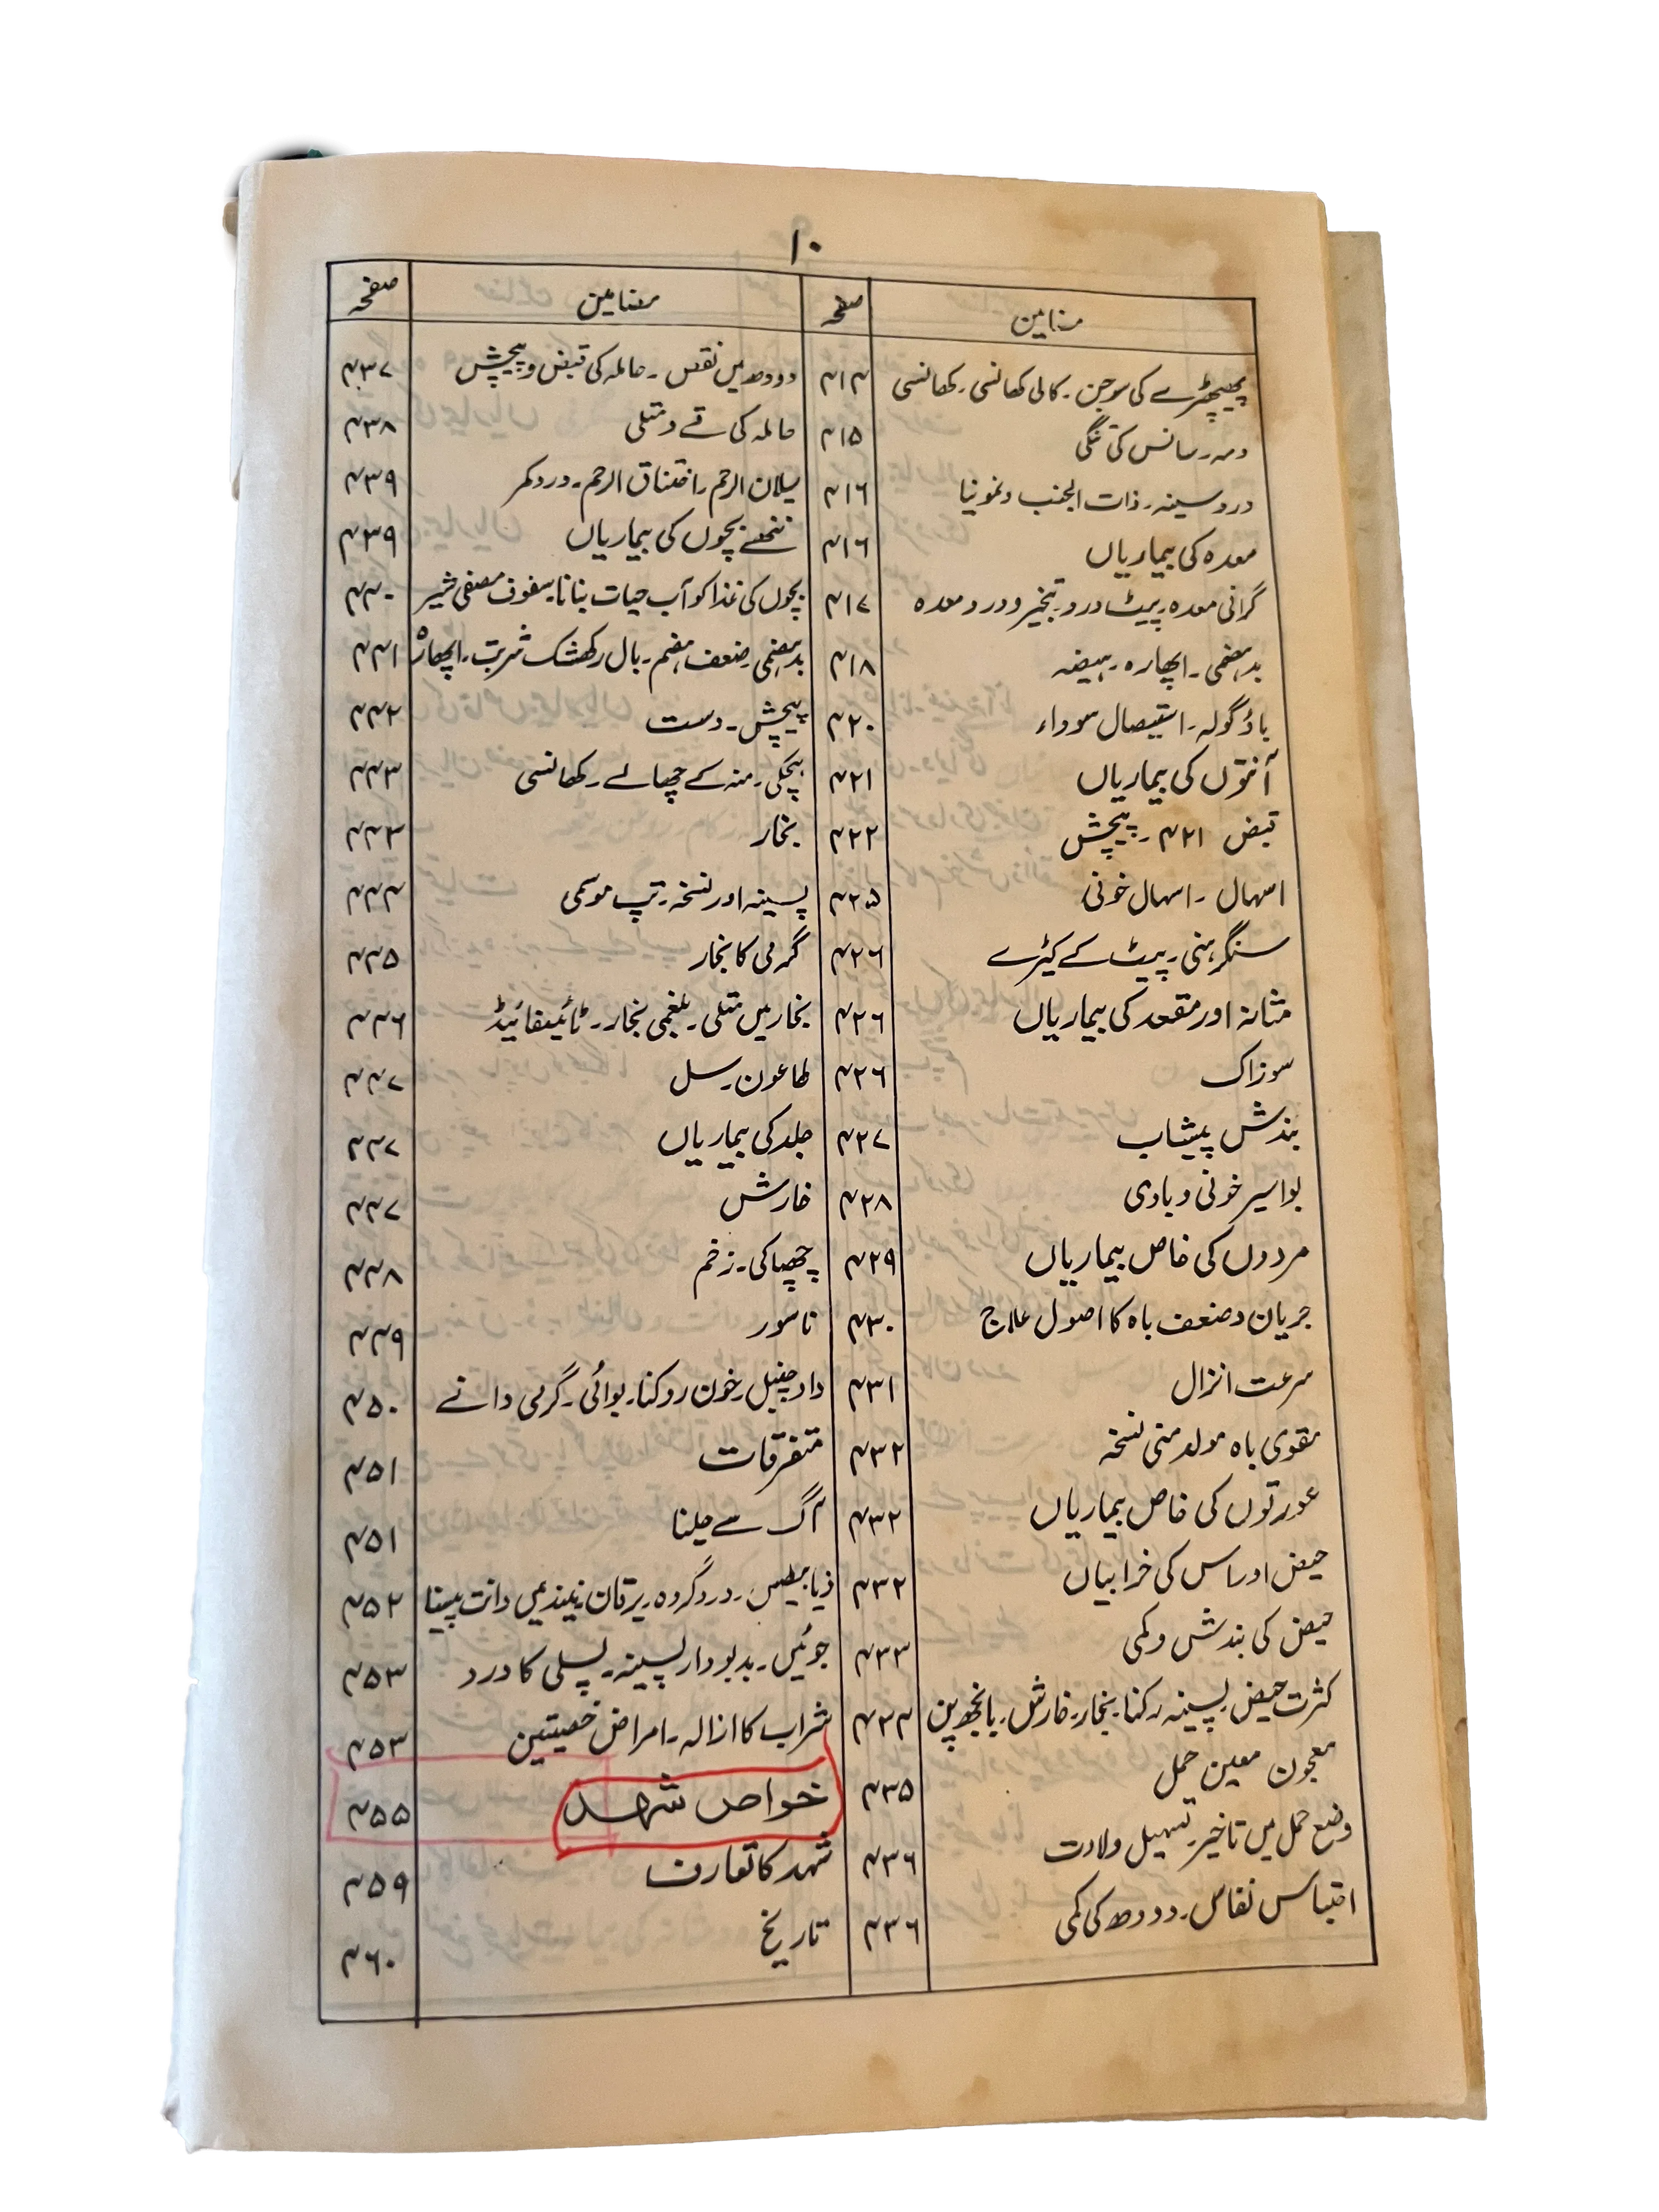 ۱۰
مضامین صفحہ
پھیپھڑے کی سوجن ۔ کالی کھانسی ۔ کھانسی ۴۱۴
دمہ ۔ سانس کی تنگی ۴۱۵
درد سینہ ۔ ذات الجنب و نمونیا ۴۱۶
معدہ کی بیماریاں ۴۱۶
گرانی معدہ ۔ پیٹ درد ۔ تبخیر و درد معدہ ۴۱۷
بدہضمی ۔ اپھارہ ۔ ہیضہ ۴۱۸
باؤ گولہ ۔ استیصال سوداء ۴۲۰
آنتوں کی بیماریاں ۴۲۱
قبض ۴۲۱ ۔ پیچش ۴۲۲
اسہال ۔ اسہال خونی ۴۲۵
سنگرہنی ۔ پیٹ کے کیڑے ۴۲۶
مثانہ اور مقعد کی بیماریاں ۴۲۶
سوزاک ۴۲۶
بندش پیشاب ۴۲۷
بواسیر خونی و بادی ۴۲۸
مردوں کی خاص بیماریاں ۴۲۹
جریان و ضعف باہ کا اصول علاج ۴۳۰
سرعت انزال ۴۳۱
مقوی باہ مولد منی نسخہ ۴۳۲
عورتوں کی خاص بیماریاں ۴۳۲
حیض اور اس کی خرابیاں ۴۳۲
حیض کی بندش و کمی ۴۳۳
کثرت حیض ۔ پسینہ رکنا ۔ بخار ۔ خارش ۔ بانجھ پن ۴۳۴
معجون معین حمل ۴۳۵
وضع حمل میں تاخیر ۔ تسہیل ولادت ۴۳۶
احتباس نفاس ۔ دودھ کی کمی ۴۳۶
مضامین صفحہ
دودھ میں نقص ۔ حاملہ کی قبض و پیچش ۴۳۷
حاملہ کی قے و متلی ۴۳۸
سیلان الرحم ۔ اختناق الرحم ۔ درد کمر ۴۳۹
ننھے بچوں کی بیماریاں ۴۳۹
بچوں کی غذا کو آب حیات بنانا ۔ سفوف مصفی شیر ۴۴۰
بدہضمی ۔ ضعف ہضم ۔ بال رکھشک شربت ۔ اپھارہ ۴۴۱
پیچش ۔ دست ۴۴۲
ہچکی ۔ منہ کے چھالے ۔ کھانسی ۴۴۳
بخار ۴۴۳
پسینہ اور نسخہ ۔ تپ موسمی ۴۴۴
گرمی کا بخار ۴۴۵
بخار میں متلی ۔ بلغمی بخار ۔ ٹائیفائیڈ ۴۴۶
طاعون ۔ سل ۴۴۷
جلد کی بیماریاں ۴۴۷
خارش ۴۴۷
چھپاکی ۔ زخم ۴۴۸
ناسور ۴۴۹
داد چنبل ۔ خون روکنا ۔ بوائی ۔ گرمی دانے ۴۵۰
متفرقات ۴۵۱
آگ سے جلنا ۴۵۱
ذیابیطس ۔ درد گردہ ۔ یرقان ۔ نیند میں دانت پیسنا ۴۵۲
جوئیں ۔ بدبودار پسینہ ۔ پسلی کا درد ۴۵۳
شراب کا ازالہ ۔ امراض خصیتین ۴۵۳
خواص شہد ۴۵۵
شہد کا تعارف ۴۵۹
تاریخ ۴۶۰